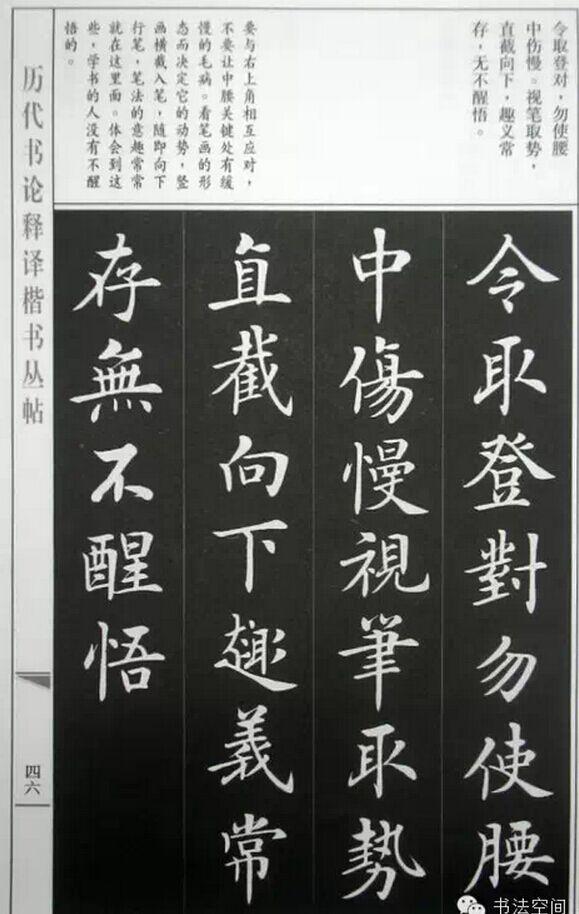 令取登对，勿使腰
中伤慢。视笔取势，
直截向下，趣义常
存，无不醒悟。
要与右上角相互应对，
不要让中腰关键处有缓
慢的毛病。看笔画的形
态而决定它的动势，竖
画横截入笔，随即向下
行笔，笔法的意趣常常
就在这里面。体会到这
些，学书的人没有不醒
悟的。
令取登對勿使腰
中傷慢視筆取勢
直截向下趣義常
存無不醒悟
历代书论释译楷书丛帖
四六
书法空间